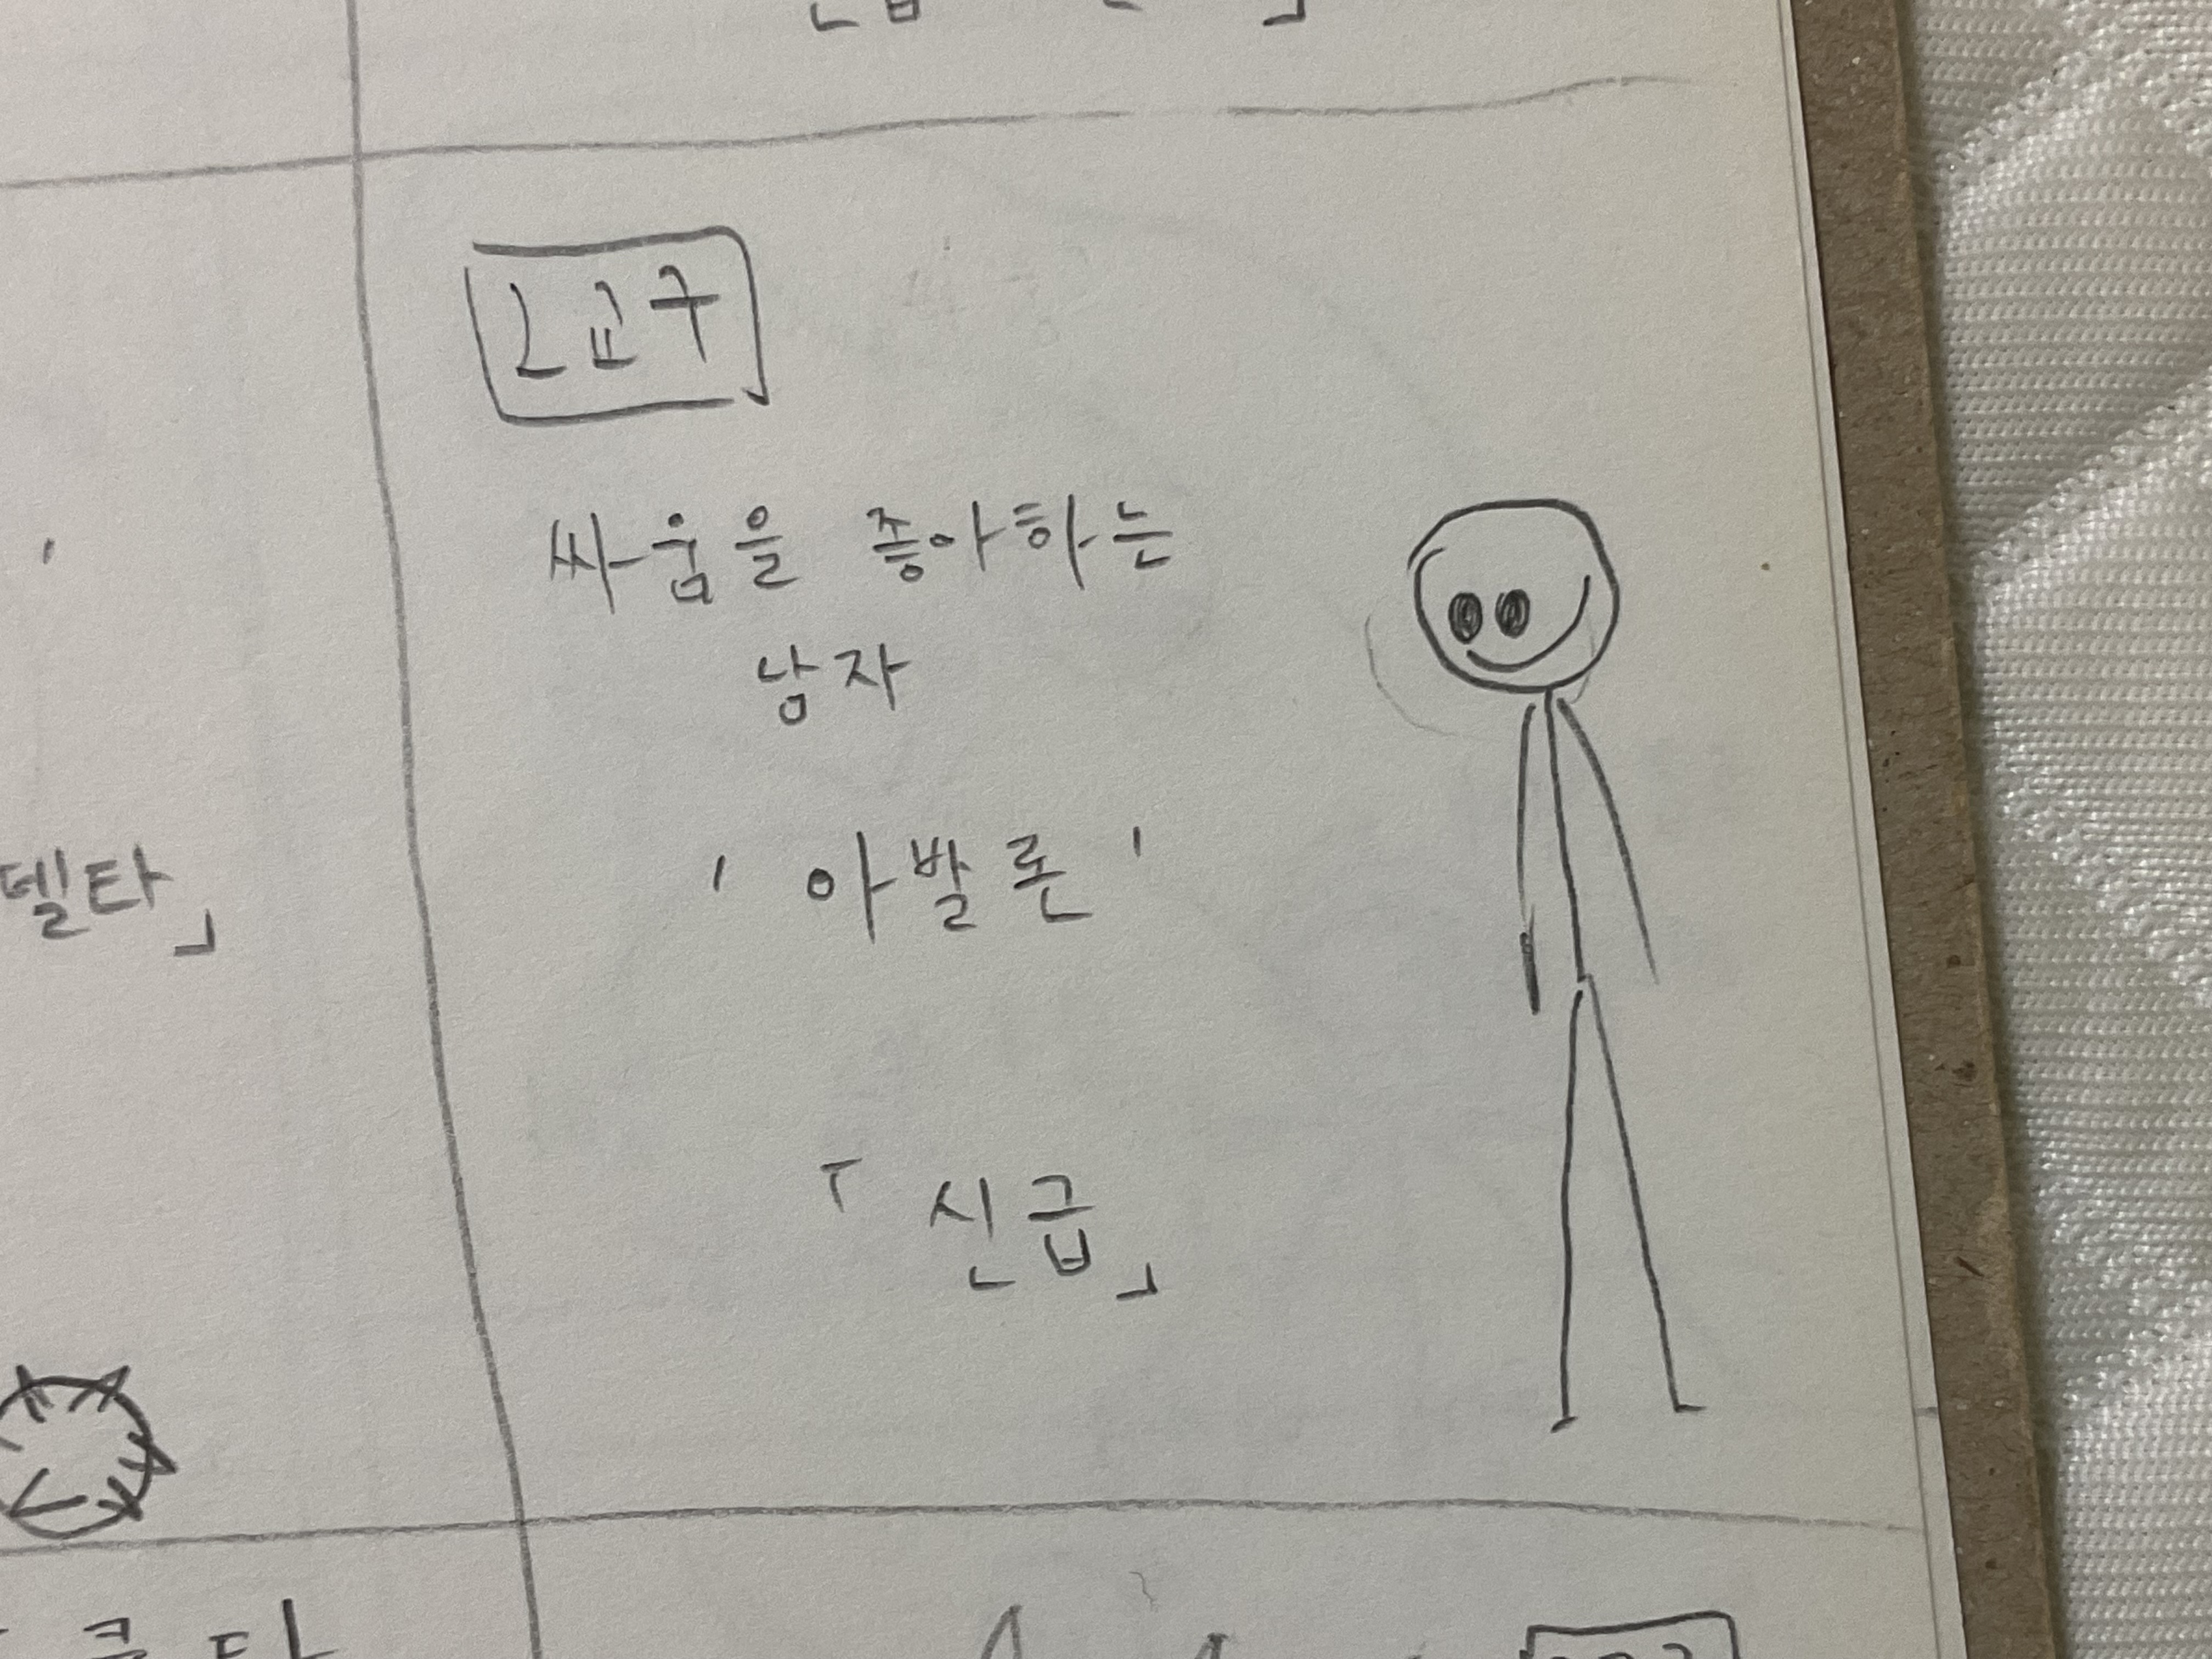 L교구
싸움을 좋아하는
남자
' 아발론 '
「 신급」
델타」